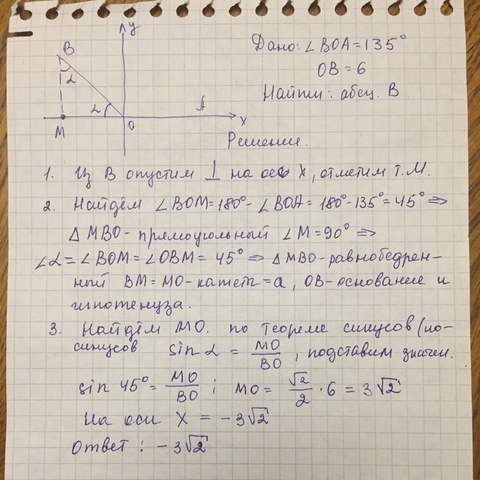 y
B
α
α
A
M
O
x
Дано: ∠BOA = 135°
OB = 6
Найти: абсц. B
Решение.
1. Из B опустим ⊥ на ось x, отметим т. M.
2. Найдём ∠BOM = 180° - ∠BOA = 180° - 135° = 45° ⇒
△ MBO - прямоугольный ∠M = 90° ⇒
∠α = ∠BOM = ∠OBM = 45° ⇒ △ MBO - равнобедрен-
ный BM = MO - катеты = a, OB - основание и
гипотенуза.
3. Найдём MO. по теореме синусов (ко-
синусов sin α = MO/BO, подставим значен.
sin 45° = MO/BO ; MO = √2/2 · 6 = 3√2
На оси X = -3√2
Ответ: -3√2